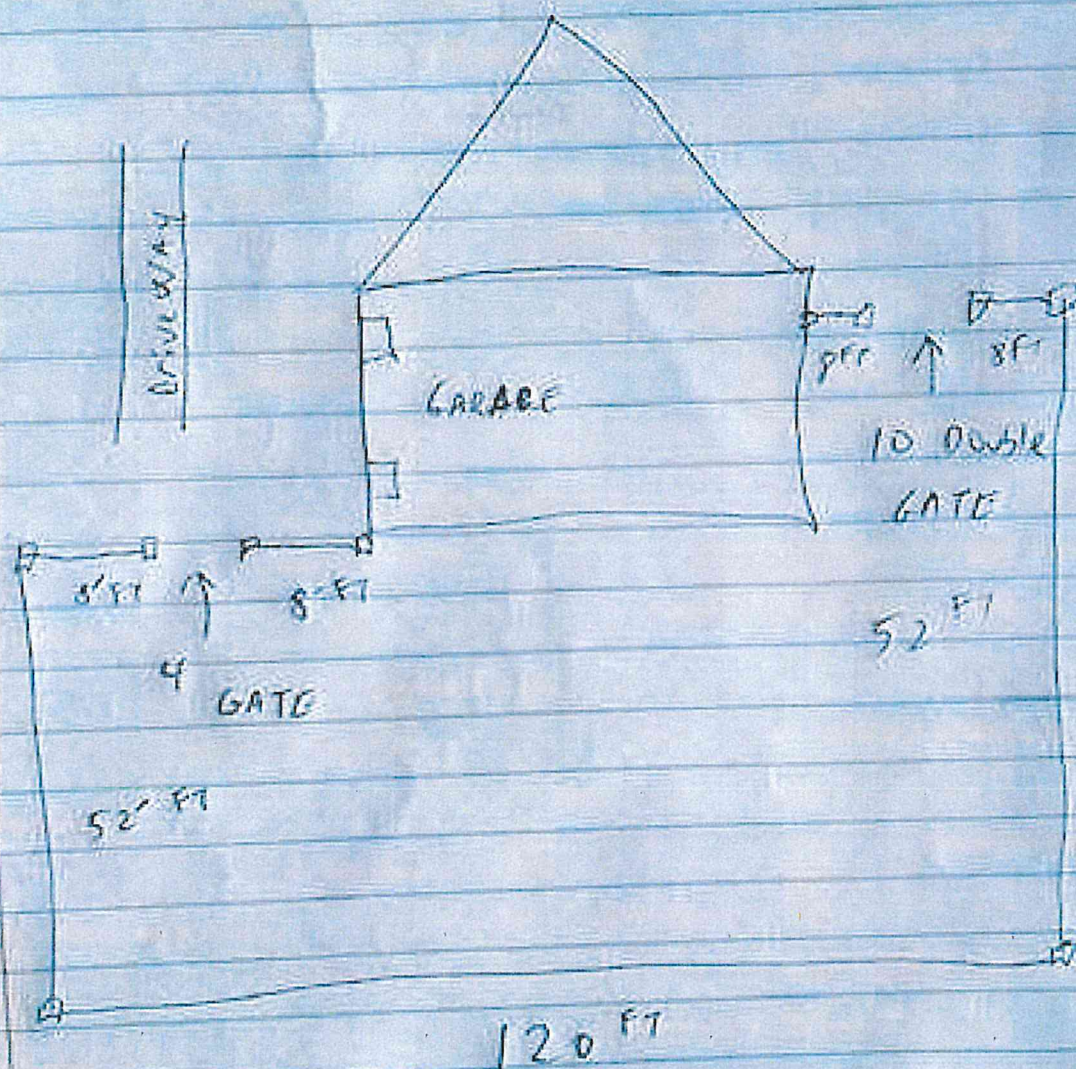 Driveway
GARAGE
8FT
10 Double
GATE
8'FT
8-FT
4
GATE
52 FT
52' FT
120 FT